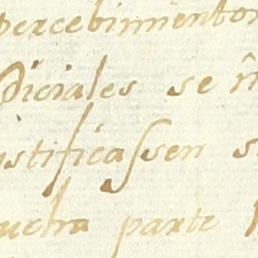 percebimientos
diciales se m
ustificassen s
ucha parte